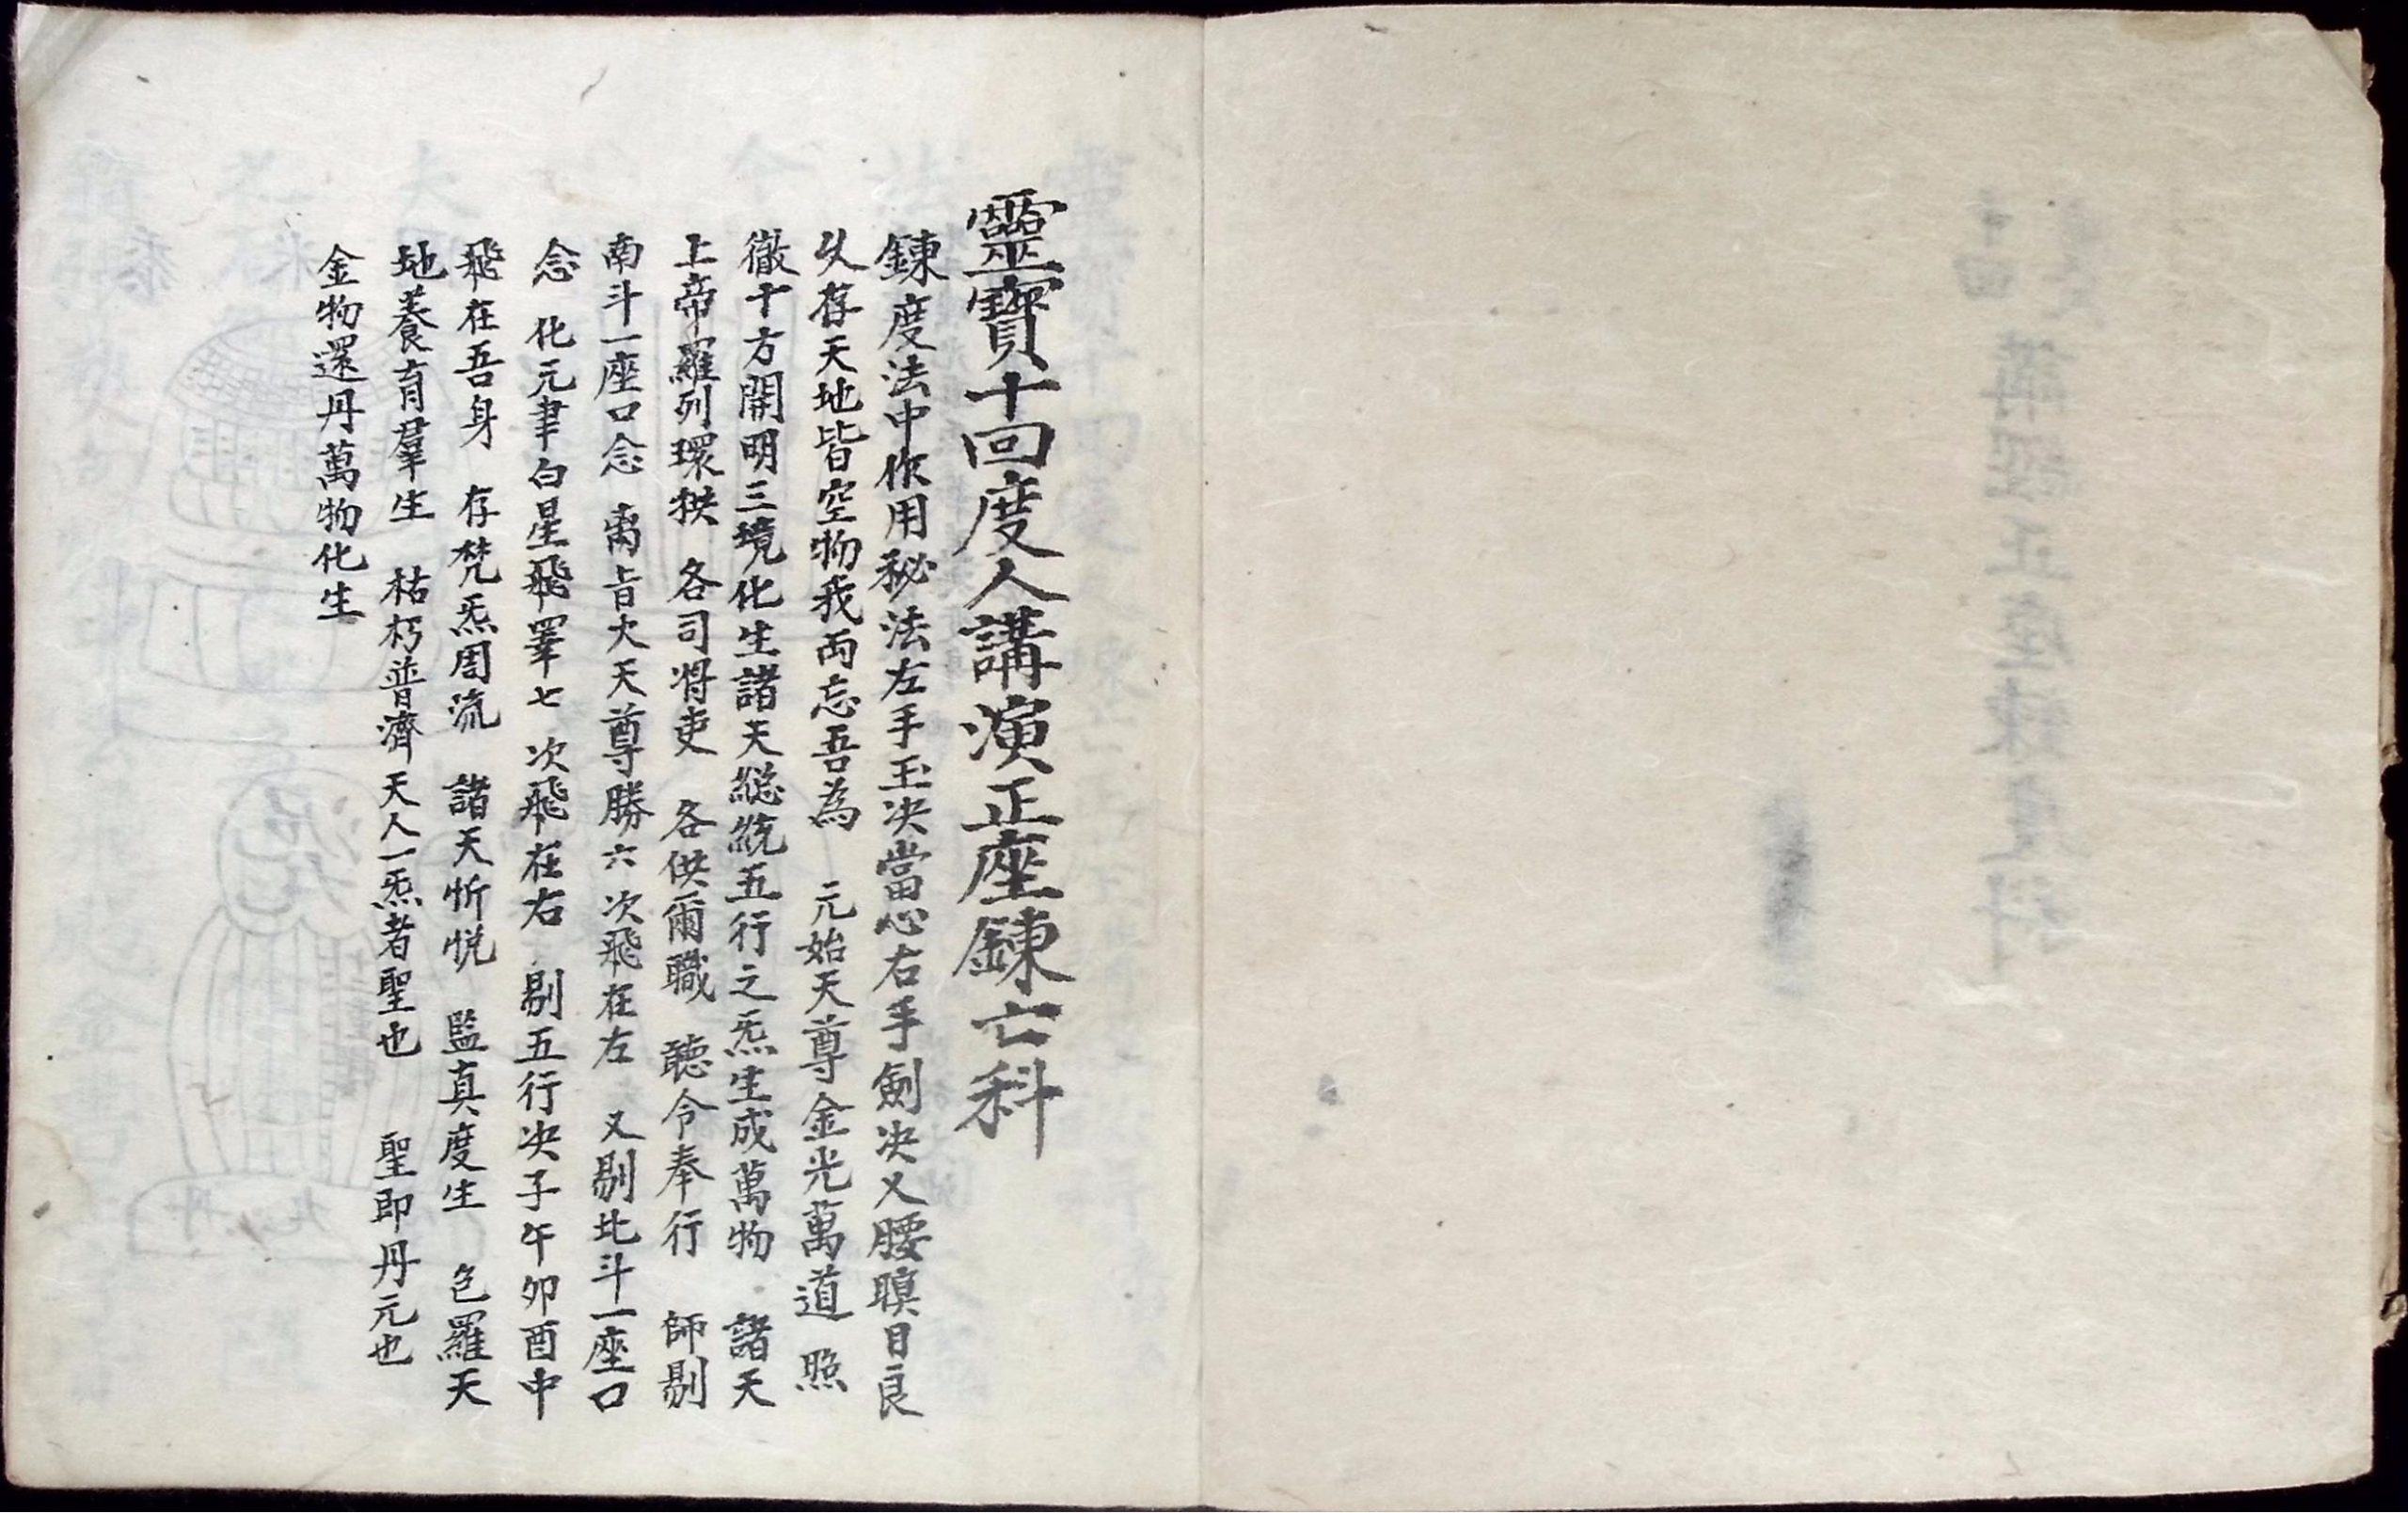 靈寶十回度人講演正座鍊亡科
鍊度法中作用秘法左手玉决當心右手劍决乂腰瞑目良
乆存天地皆空物我両忘吾為 元始天尊金光萬道 照
徹十方開明三境化生諸天緫統五行之炁生成萬物 諸天
上帝羅列環拱 各司將吏 各供爾職 聽令奉行 師剔
南斗一座口念 大天尊勝六次飛在左 又剔北斗一座口
念 化元聿白星飛睪七 次飛在右 剔五行决子午卯酉中
飛在吾身 存梵炁周流 諸天忻悦 監真度生 包羅天
地養育羣生 枯朽普濟天人一炁者聖也 聖即丹元也
金物還丹萬物化生